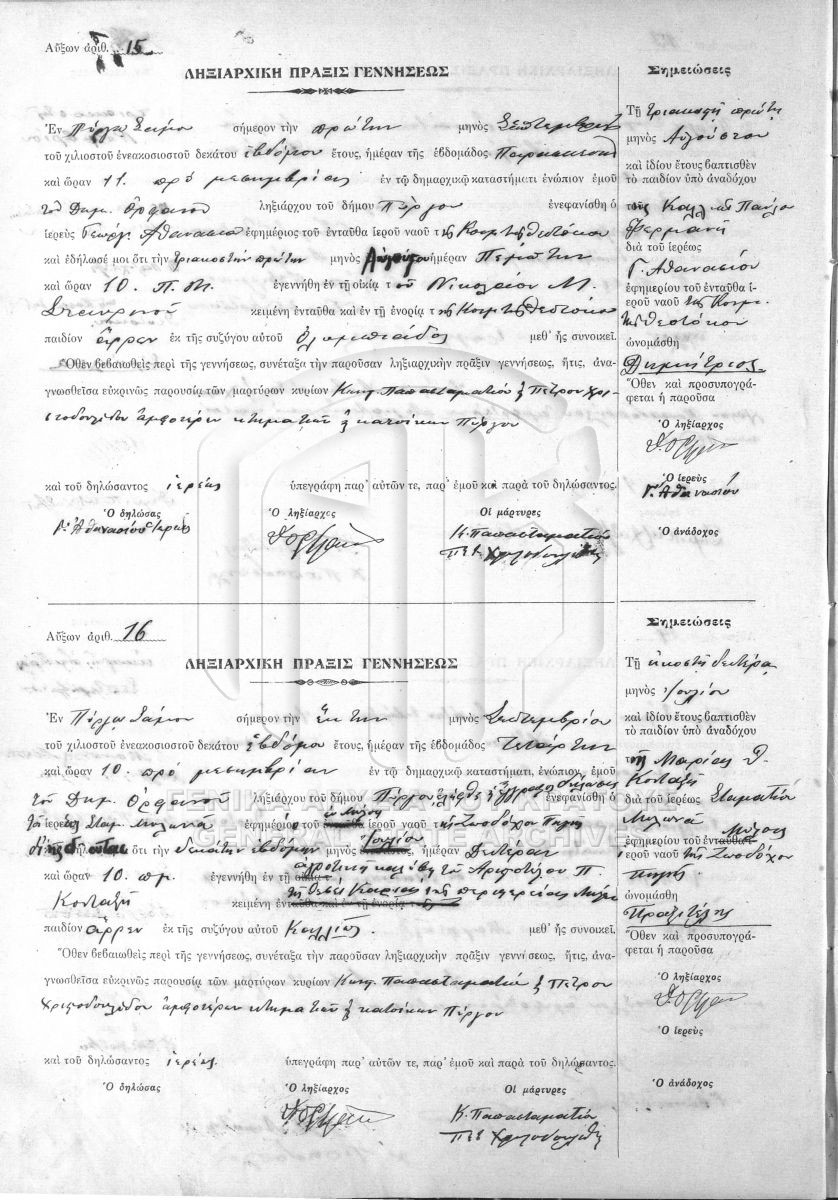 Αὔξων ἀριθ. 15
ΛΗΞΙΑΡΧΙΚΗ ΠΡΑΞΙΣ ΓΕΝΝΗΣΕΩΣ
Ἐν Πύργῳ Σάμου σήμερον τὴν πρώτην μηνὸς Σεπτεμβρίου
τοῦ χιλιοστοῦ ἐνεακοσιοστοῦ δεκάτου ἑβδόμου ἔτους, ἡμέραν τῆς ἑβδομάδος Παρασκευὴν
καὶ ὥραν 11. πρὸ μεσημβρίας ἐν τῷ δημαρχικῷ καταστήματι ἐνώπιον ἐμοῦ
τοῦ Δημ. Ὀρφανοῦ ληξιάρχου τοῦ δήμου Πύργου ἐνεφανίσθη ὁ
ἱερεὺς Γεώργ. Ἀθανασίου ἐφημέριος τοῦ ἐνταῦθα ἱεροῦ ναοῦ τῆς Κοιμ τῆς Θεοτόκου
καὶ ἐδήλωσέ μοι ὅτι τὴν τριακοστὴν πρώτην μηνὸς Αὐγούστου ἡμέραν Πέμπτην
καὶ ὥραν 10. π.μ. ἐγεννήθη ἐν τῇ οἰκίᾳ τοῦ Νικολάου Μ.
Σταυρινοῦ κειμένη ἐνταῦθα καὶ ἐν τῇ ἐνορίᾳ τῆς Κοιμ τῆς Θεοτόκου
παιδίον ἄρρεν ἐκ τῆς συζύγου αὐτοῦ Ὀλυμπιάδος μεθ' ἧς συνοικεῖ.
Ὅθεν βεβαιωθεὶς περὶ τῆς γεννήσεως, συνέταξα τὴν παροῦσαν ληξιαρχικὴν πρᾶξιν γεννήσεως, ἥτις, ἀνα-
γνωσθεῖσα εὐκρινῶς παρουσίᾳ τῶν μαρτύρων κυρίων Κωνς. Παπασταματίου & Πέτρου Χρι-
στοδουλίδου ἀμφοτέρων κτηματιῶν & κατοίκων Πύργου
καὶ τοῦ δηλώσαντος ἱερέως ὑπεγράφη παρ' αὐτῶν τε, παρ' ἐμοῦ καὶ παρὰ τοῦ δηλώσαντος.
Ὁ δηλώσας Ὁ ληξίαρχος Οἱ μάρτυρες
Γ. Ἀθανασίου Ἱερεὺς Κ. Παπασταματίου
Πέτ. Χριστοδουλίδης
Σημειώσεις
Τῇ τριακοστῇ πρώτῃ
μηνὸς Αὐγούστου
καὶ ἰδίου ἔτους βαπτισθὲν
τὸ παιδίον ὑπὸ ἀναδόχου
τῆς Παύλου
διὰ τοῦ ἱερέως
Γ. Ἀθανασίου
ἐφημερίου τοῦ ἐνταῦθα ἱ-
εροῦ ναοῦ τῆς Κοιμ.
τῆς Θεοτόκου
ὠνομάσθη
Δημήτριος.
Ὅθεν καὶ προσυπογρά-
φεται ἡ παροῦσα
Ὁ ληξίαρχος
Ὁ ἱερεὺς
Γ. Ἀθανασίου
Ὁ ἀνάδοχος
Αὔξων ἀριθ. 16
ΛΗΞΙΑΡΧΙΚΗ ΠΡΑΞΙΣ ΓΕΝΝΗΣΕΩΣ
Ἐν Πύργῳ Σάμου σήμερον τὴν ἕκτην μηνὸς Σεπτεμβρίου
τοῦ χιλιοστοῦ ἐνεακοσιοστοῦ δεκάτου ἑβδόμου ἔτους, ἡμέραν τῆς ἑβδομάδος Τετάρτην
καὶ ὥραν 10. πρὸ μεσημβρίας ἐν τῷ δημαρχικῷ καταστήματι, ἐνώπιον, ἐμοῦ
τοῦ Δημ. Ὀρφανοῦ ληξιάρχου τοῦ δήμου Πύργου ἐλήφθη ἡ ἔγγραφος δήλωσις ἐνεφανίσθη ὁ
τοῦ ἱερέως Σταμ. Μυλωνᾶ ἐφημερίου τοῦ ἐν Μύλοις ἱεροῦ ναοῦ τῆς Ζωοδόχου Πηγῆς
ὅτι τὴν δεκάτην ἑβδόμην μηνὸς Ἰουλίου ἡμέραν Δευτέραν
καὶ ὥραν 10 π.μ. ἐγεννήθη ἐν τῇ ἀγροτικῇ καλύβῃ τοῦ Ἀριστοτέλου Π.
Κονταξῆ κειμένη τῇ θέσει τῆς περιφερείας Μύλων
παιδίον ἄρρεν ἐκ τῆς συζύγου αὐτοῦ Καλλιόπης. μεθ' ἧς συνοικεῖ.
Ὅθεν βεβαιωθεὶς περὶ τῆς γεννήσεως, συνέταξα τὴν παροῦσαν ληξιαρχικὴν πρᾶξιν γεννήσεως, ἥτις, ἀνα-
γνωσθεῖσα εὐκρινῶς παρουσίᾳ τῶν μαρτύρων κυρίων Κωνς. Παπασταματίου & Πέτρου
Χριστοδουλίδου ἀμφοτέρων κτηματιῶν & κατοίκων Πύργου
καὶ τοῦ δηλώσαντος ἱερέως. ὑπεγράφη παρ' αὐτῶν τε, παρ' ἐμοῦ καὶ παρὰ τοῦ δηλώσαντος.
Ὁ δηλώσας Ὁ ληξίαρχος Οἱ μάρτυρες
Κ. Παπασταματίου
Πέτ Χριστοδουλίδης
Σημειώσεις
Τῇ εἰκοστῇ δευτέρᾳ
μηνὸς Ἰουλίου
καὶ ἰδίου ἔτους βαπτισθὲν
τὸ παιδίον ὑπὸ ἀναδόχου
τῆς Μαρίας Δ.
Κονταξῆ
διὰ τοῦ ἱερέως Σταματίου
Μυλωνᾶ
ἐφημερίου τοῦ ἐν Μύλοις
ἱεροῦ ναοῦ τῆς Ζωοδόχου
πηγῆς
ὠνομάσθη
Πραξιτέλης
Ὅθεν καὶ προσυπογρά-
φεται ἡ παροῦσα
Ὁ ληξίαρχος
Ὁ ἱερεὺς
Ὁ ἀνάδοχος
ΓΕΝΙΚΑ ΑΡΧΕΙΑ ΤΟΥ ΚΡΑΤΟΥΣ
GENERAL STATE ARCHIVES